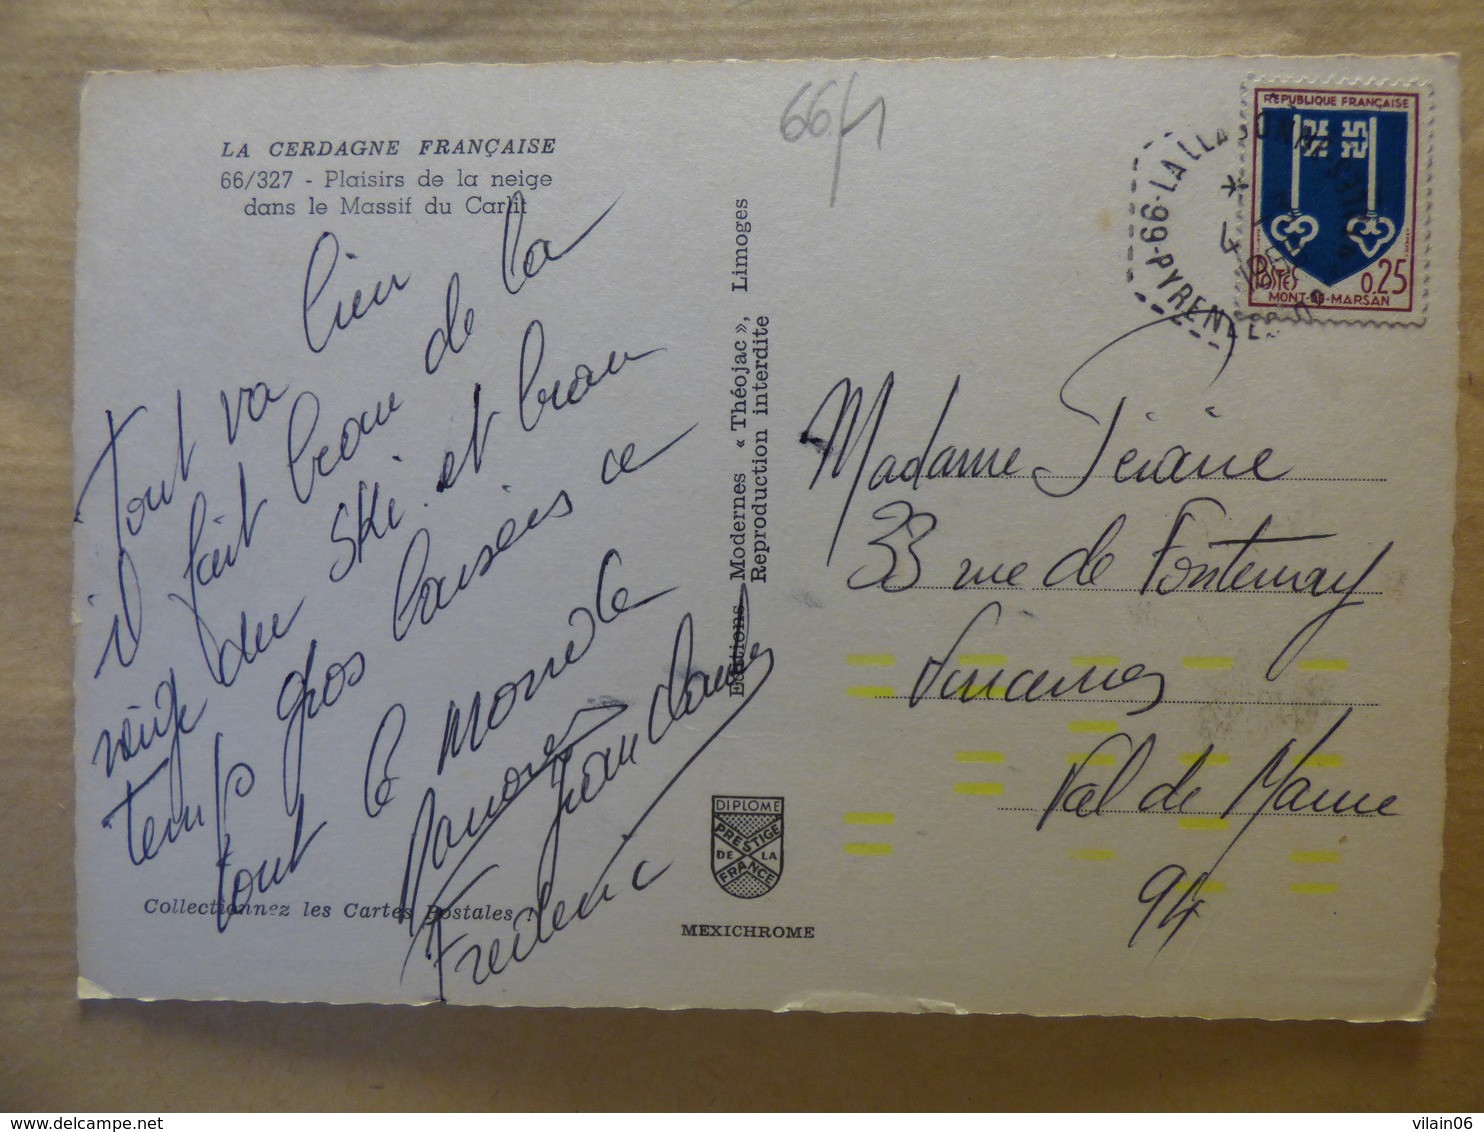 LA CERDAGNE FRANÇAISE
66/327 - Plaisirs de la neige
dans le Massif du Carlit
66/1
Tout va bien
il fait beau de la
neige du ski et beau
temps gros baisers à
tout le monde
Jean Claude
Frederic
Collectionnez les Cartes Postales !
Editions Modernes « Théojac », Limoges
Reproduction interdite
DIPLOME
PRESTIGE
DE LA
FRANCE
MEXICHROME
66-LA LLAGONNE
PYRENEES
REPUBLIQUE FRANÇAISE
POSTES 0.25
MONT-DE-MARSAN
Madame
33 rue de Fontenay
Vincennes
Val de Marne
94
delcampe.net
vilain06